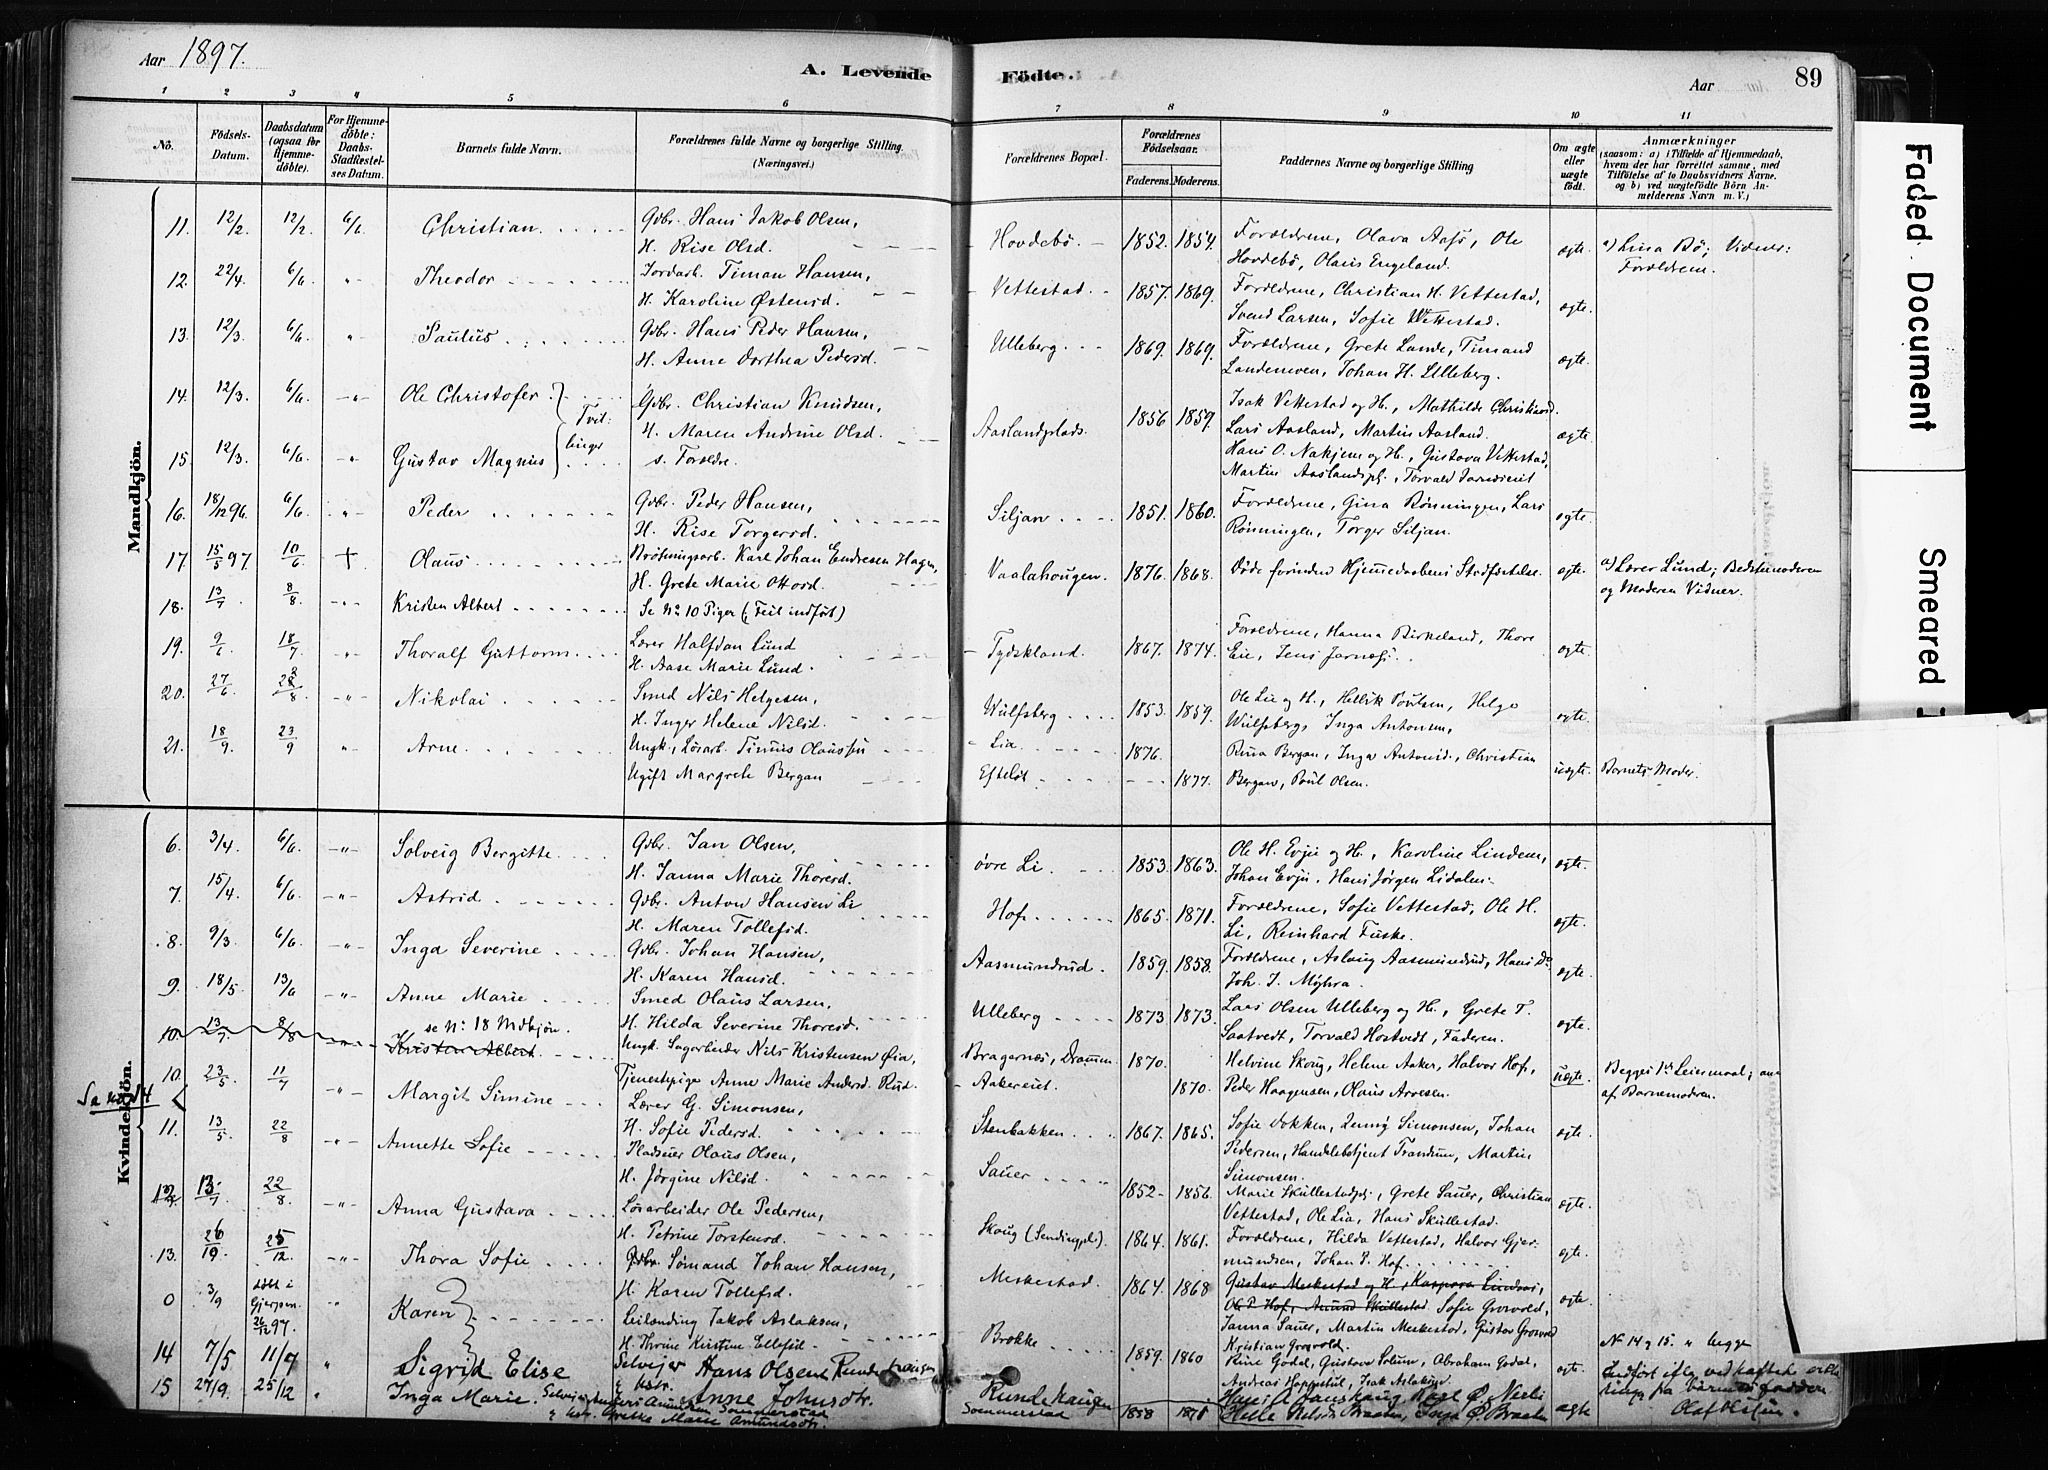 Aar 1897.
A. Levende Födte.
Aar
89
1 2 3 4 5 6 7 8 9 10 11
No. Födsels-Datum. Daabsdatum (ogsaa for Hjemmedöbte). For Hjemmedöbte: Daabs-Stadfæstelses Datum. Barnets fulde Navn. Forældrenes fulde Navne og borgerlige Stilling. (Næringsvei.) Forældrenes Bopæl. Forældrenes Födselsaar. Faderens. Moderens. Faddernes Navne og borgerlige Stilling Om ægte eller uægte födt. Anmærkninger (saasom: a) i Tilfælde af Hjemmedaab, hvem der har forrettet samme, med Tilföielse af to Daabsvidners Navne. og b) ved uægtefödte Börn Anmelderens Navn m. V.;
Mandkjön.
11. 12/2 12/2 6/6 Christian. Gdbr. Hans Jakob Olsen, H. Rise Olsd. Hovdebö. 1852. 1854. Forældrene, Olava Aasö, Ole Hovdebö, Olaus Engeland. ægte. a) Lina Bö; Vidner: Forældrene.
12. 22/4 6/6 " Theodor Jordarb. Timan Hansen, H. Karoline Östensd. Vettestad. 1857. 1869. Forældrene, Christian H. Vettestad, Svend Larsen, Sofie Vettestad. ægte.
13. 12/3 6/6 " Paulus Gdbr. Hans Peder Hansen, H. Anne Dorthea Pedersd. Ulleberg. 1869. 1869. Forældrene, Grete Lande, Timand Landemoen, Johan H. Ulleberg. ægte.
14. 12/3 6/6 " Ole Christofer Tvillinger Gdbr. Christian Knudsen, H. Maren Andrine Olsd. Aaslandplads. 1856 1859. Isak Vettestad og H., Mathilde Christiansd. Lars Aasland, Martin Aasland. ægte.
15. 12/3. 6/6. " Gustav Magnus s. Forældre. Hans O. Nakjem og H., Gustava Vettestad, Martin Aaslandspl., Torvald
16. 18/12 96. 6/6 " Peder Gdbr. Peder Hansen, H. Rise Torgersd. Siljan. 1851. 1860. Forældrene, Gina Rönningen, Lars Rönningen, Torger Siljan. ægte.
17. 15/5 97. 10/6 + Olaus. Brötningsarb. Karl Johan Endresen Hagen, H. Grete Marie Ottosd. Vaalahougen. 1876. 1868. Döde forinden Hjemmedaabens Stadfæstelse. ægte. a) Lærer Lund; Bedstemoderen og Moderen Vidner.
18. 13/7 8/8. " Kristen Albert Se No 10 Piger (Feil indført)
19. 9/6 18/7 " Thoralf Guttorm. Lærer Halfdan Lund H. Aase Marie Lund. Tydskland. 1867. 1874. Forældrene, Hanna Birkeland, Thore Eie, Jens Jarnæs. ægte.
20. 27/6 22/8 " Nikolai Smed Nils Helgesen, H. Inger Helene Nilsd. Wulfsberg. 1853. 1859. Ole Lie og H., Hellik Poulsen, Helge Wulfsberg, Inga Antonsen, ægte.
21. 18/9. 23/9 " Arne Ungk., Lösarb. Timus Olaussen Ugift Margrete Bergan Lia. Efteløt 1876. 1877. Rina Bergan, Inga Antonsd., Christian Bergan, Poul Olsen. uægte. Barnets Moder.
Kvindekjön.
6. 3/4. 6/6 " Solveig Bergitte Gdbr. Jan Olsen, H. Janna Marie Thoresd. övre Li. 1853. 1863. Ole H. Evju og H., Karoline Lindem, Johan Evju, Hans Jörgen Lidalen. ægte.
7. 15/4. 6/6. " Astrid Gdbr. Anton Hansen Li H. Maren Tollefsd. Hof. 1865. 1871. Forældrene, Sofie Vettestad, Ole H. Li, Reinhard Fuske. ægte.
8. 9/3. 6/6. " Inga Severine Gdbr. Johan Hansen, H. Karen Hansd. Aasmundrud. 1859. 1858. Forældrene, Aslaug Aasmundrud, Hans Do Joh. J. Myhra. ægte.
9. 18/5. 13/6 " Anne Marie Smed Olaus Larsen, H. Hilda Severine Thoresd. Ulleberg 1873 1873. Lars Olsen Ulleberg og H., Grete T. Saatvedt, Torvald Hostvedt, Faderen. ægte.
10. 13/7. 8/8 " se No 18 Mdkjön. Kristen Albert.
10. 23/5. 11/7 " Margit Simine Ungk. Sagarbeider Nils Kristensen Øia, Tjenestepige Anne Marie Andersd. Rud. Bragernæs, Drammen. Aakereiet. 1870. 1870. Helvine Skoug, Helene Aaker, Halvor Hof, Peder Haagensen, Olaus Arvesen. uægte. Begges 1ste Leiermaal; an. af Barnemoderen.
Se No 14
11. 13/5. 22/8 " Annette Sofie Lærer G. Simonsen, H. Sofie Pedersd. Stenbakken. 1867. 1865. Sofie Dokken, Jenny Simonsen, Johan Pedersen, Handelsbetjent Trandum, Martin Simonsen. ægte.
12. 13/7. 22/8. " Anna Gustava Pladseier Olaus Olsen, H. Jörgine Nilsd. Sauer 1852 1856. Marie Skullestadpl., Grete Sauer, Christian Vettestad, Ole Lia, Hans Skullestad. ægte.
13. 26/19. 25/12. " Thora Sofie Lösarbeider Ole Pedersen, H. Petrine Torstensd. Skoug (Sendingpl.). 1864. 1861. Forældrene, Hilda Vettestad, Halvor Gjermundsen, Johan P. Hof. ægte.
0 3/9 döbt i Gjerpen 26/12 97. " Karen Gdbr. Sömand Johan Hansen, H. Karen Tollefsd. Meskestad. 1864 1868 Gustav Meskestad og H., Kaspara Lindaas, Ole P. Hof, Amund Skullestad Sofie Grosvold, Janna Sauer, Martin Meskestad, Gustav Grosvold Kristian Grosvold. ægte.
Leilænding Jakob Aslaksen, H. Thrine Kirstine Ellefsd. Brokke 1859. 1860 Rine Godal, Gustava Solum, Abraham Godal, Andreas Hoppestul, Isak Aslaksen. ægt.
14 7/5 11/7 " Sigrid Elise Selveier Hans Olsen Rundehaugen " Hstr. Anne Johnsdtr. Rundehaugen N 14 og 15. " begge indført efter
15 27/9. 25/12 " Inga Marie. Selveier Anders Amundsen Sommerstad " Hstr. Grethe Marie Amundsdtr. Sommerstad 1858 1871 Helle Nelsd. Braaten, Inga Ø. Braaten ægte Olaf Olsen.
Faded Document
Smeared